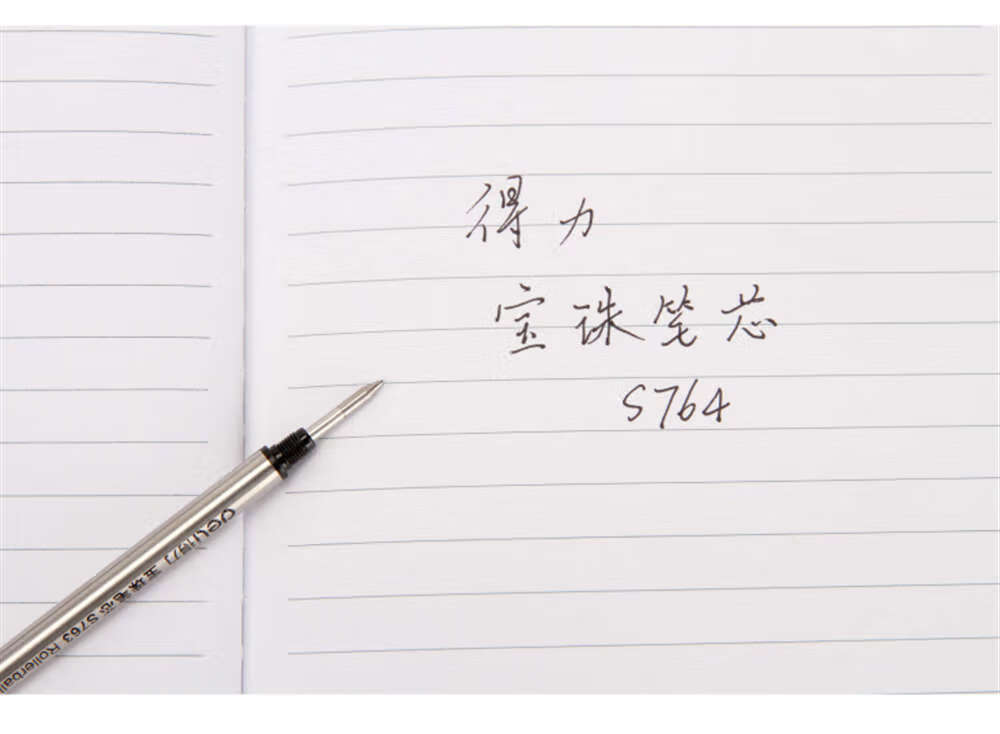 得力
宝珠笔芯
S764
deli得力 宝珠笔芯 S763 Rollerball